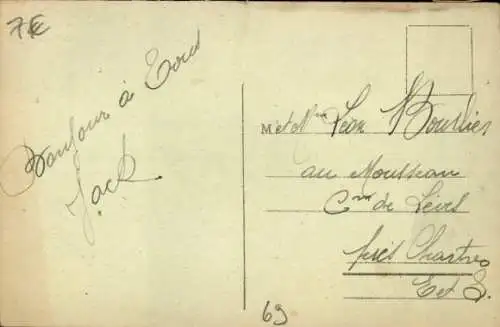 7€
Bonjour à Tous
Jack
M et Mme Léon Bourlier
au Mousseau
Cne de Lèves
près Chartres
E et L.
69